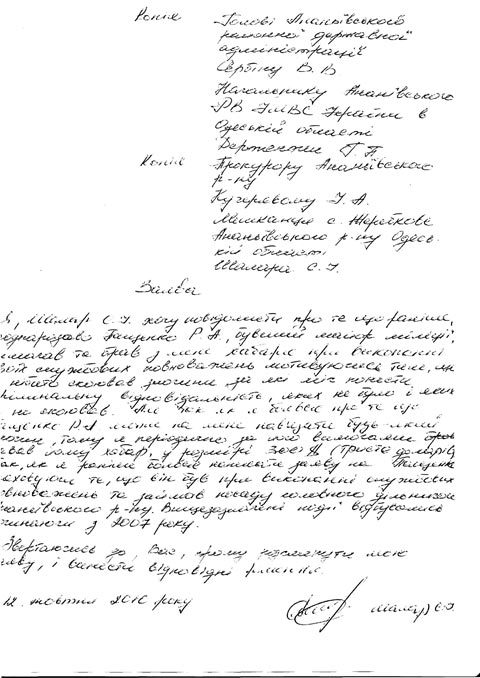 Копія Голові Ананьївського
районної державної
адміністрації
Сербіну В. В
Начальнику Ананьївського
РВ ГУМВС України в
Одеській області
Держенжи Г. П
Копія Прокурору Ананьївського
р-ну
І. А.
Мешканця с. Жеребкове
Ананьївського р-ну Одесь-
кій області
Шаларя С. І.
Заява
Я, Шалар С. І. хочу повідомити про те що раніше,
Гащенко Р. А, бувший майор міліції,
вимагав та брав з мене хабаря при виконанні
своїх службових повноважень мотивуючись тим, що
я нібито скоював злочини за які міг понести
кримінальну відповідальність, яких не було і яких
я не скоював. Але так як я боявся про те що
Гащенко Р. А може на мене навішати будь-який
злочин, тому я періодично за його вимогами
давав йому хабарі, у розмірі 300 $ (триста доларів)
так, як я раніше боявся написати заяву на Гащенка
враховуючи те, що він був при виконанні службових
повноважень та займав посаду головного дільничого
Ананьївського р-ну. Вищезазначені події відбувались
починаючи з 2007 року.
Звертаючись до Вас, прошу розглянути мою
заяву, і винести відповідні рішення.
12 жовтня 2010 року Шалар С. І.